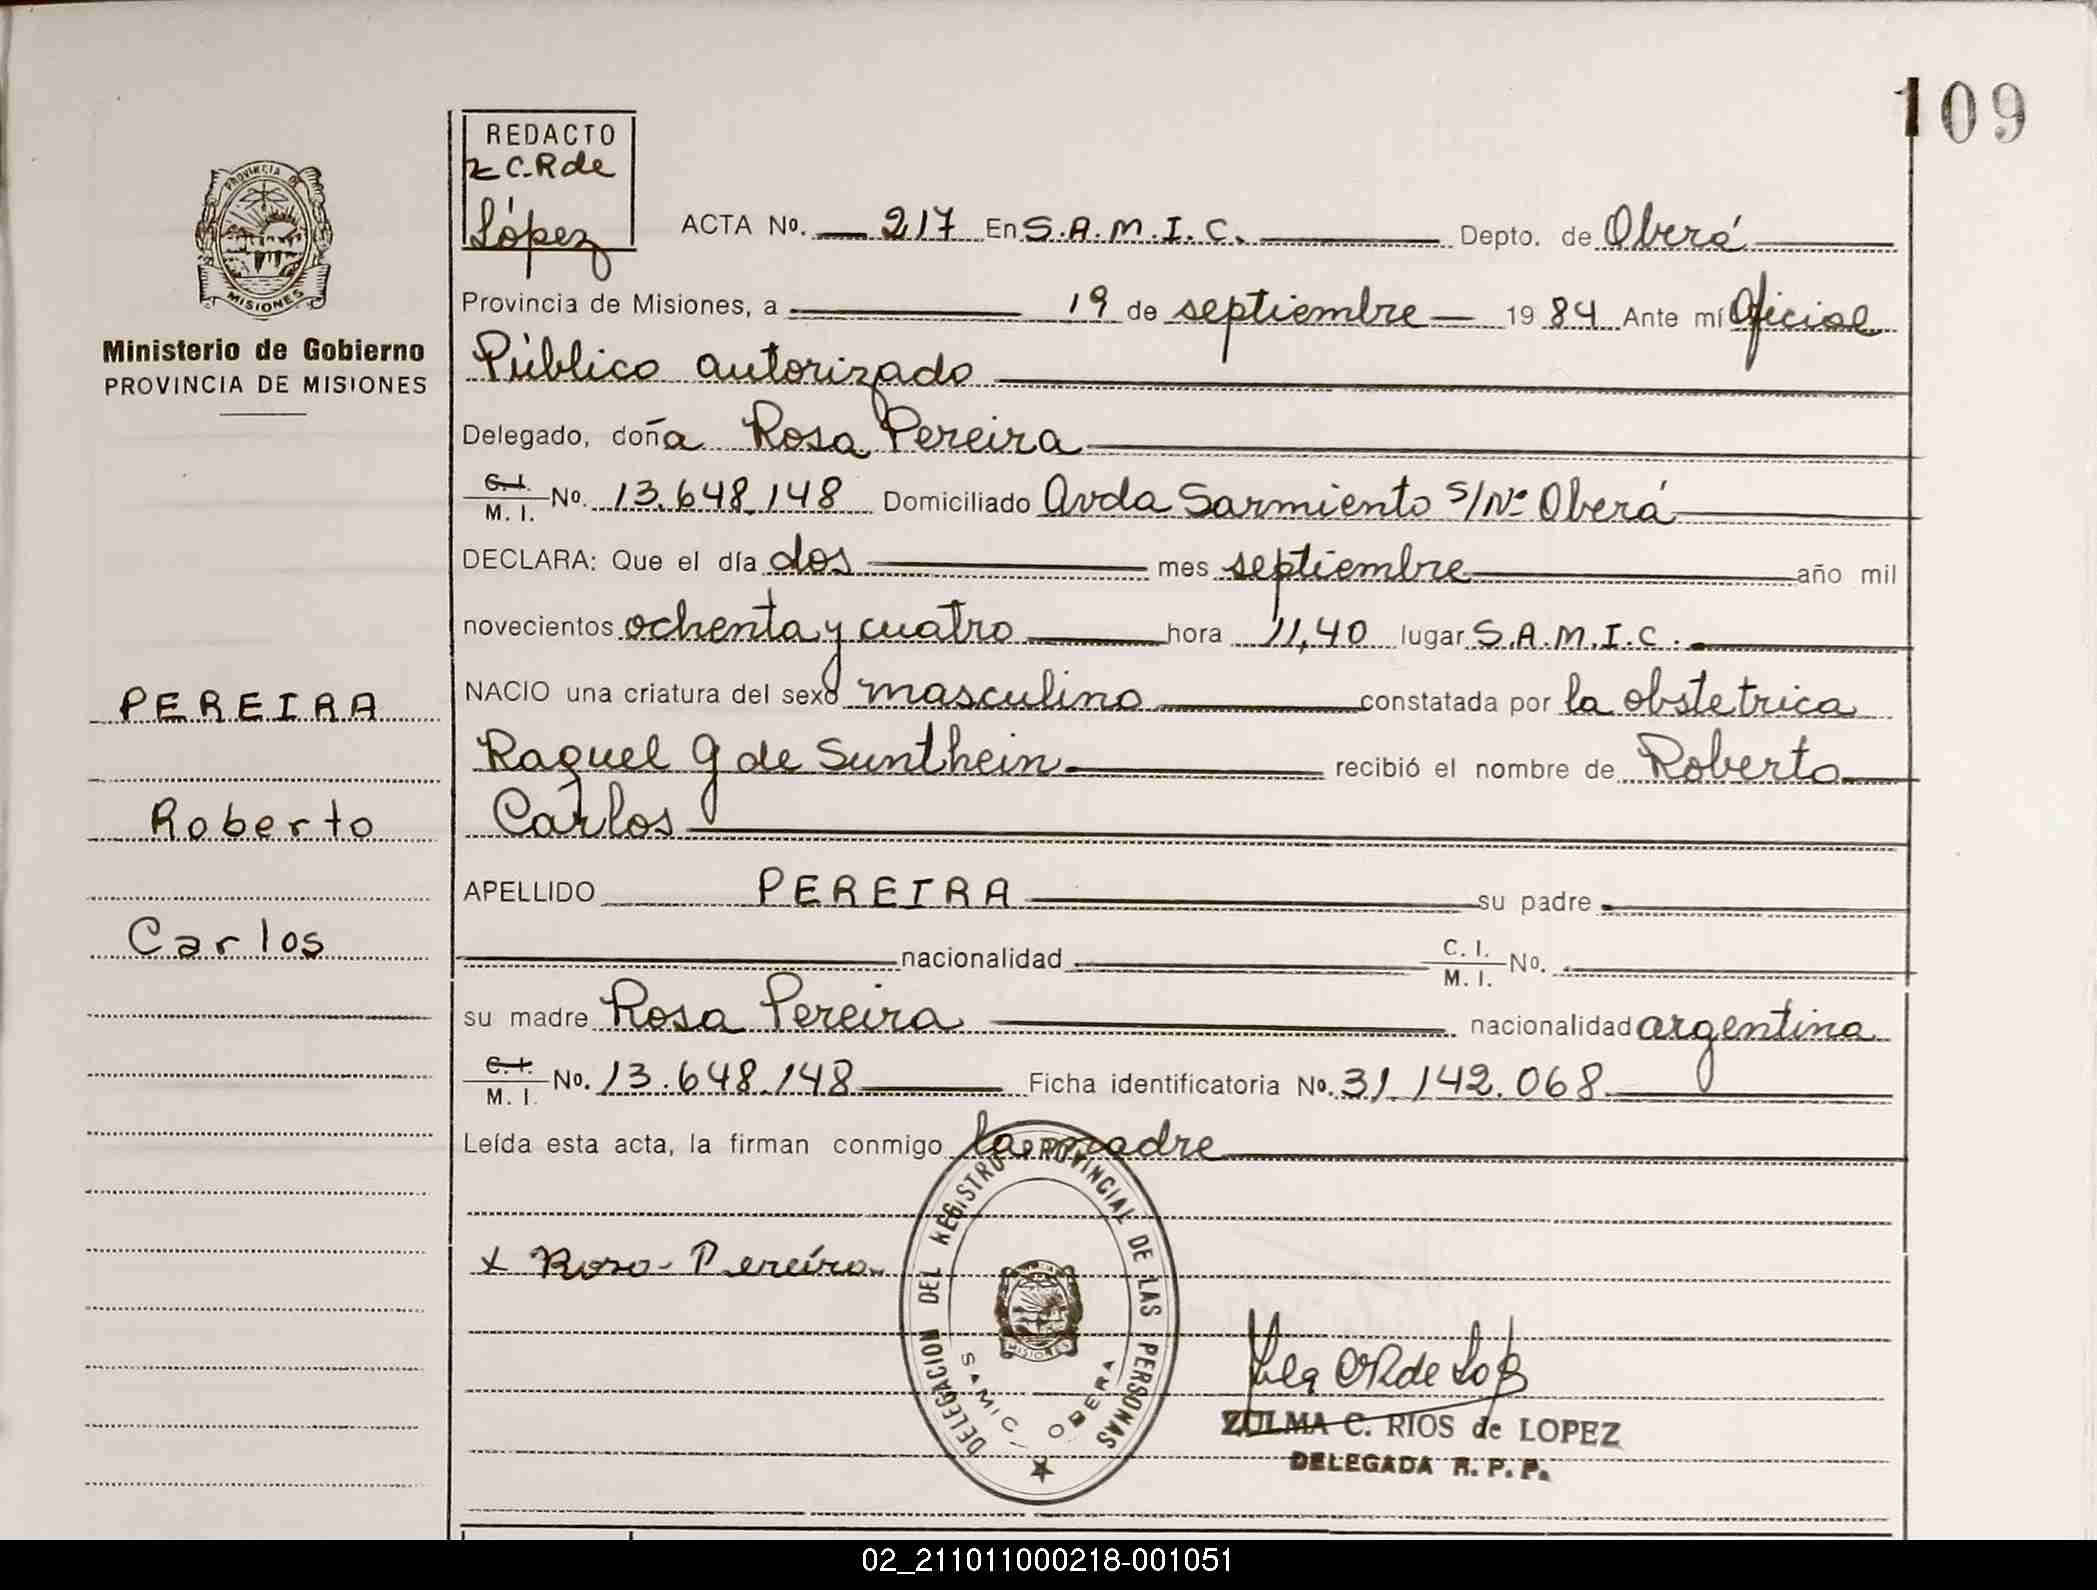 109
REDACTO
Z C. R de
López
PROVINCIA DE
MISIONES
Ministerio de Gobierno
PROVINCIA DE MISIONES
ACTA No. 217 En S.A.M.I.C. Depto. de Oberá
Provincia de Misiones, a 19 de septiembre 1984 Ante mí Oficial
Público autorizado
Delegado, doña Rosa Pereira
C. I. / M. I. No. 13.648.148 Domiciliado Avda Sarmiento S/Nº Oberá
DECLARA: Que el día dos mes septiembre año mil
novecientos ochenta y cuatro hora 11,40 lugar S.A.M.I.C.
NACIO una criatura del sexo masculino constatada por la obstetrica
Raquel G de Sunthein recibió el nombre de Roberto
Carlos
PEREIRA
Roberto
Carlos
APELLIDO PEREIRA su padre
nacionalidad C. I. / M. I. No.
su madre Rosa Pereira nacionalidad argentina
C. I. / M. I. No. 13.648.148 Ficha identificatoria No. 31.142.068
Leída esta acta, la firman conmigo la madre
x Rosa Pereira
DELEGACION DEL REGISTRO PROVINCIAL DE LAS PERSONAS
MISIONES
SAMIC. OBERA
ZULMA C. RIOS de LOPEZ
DELEGADA R. P. P.
02_211011000218-001051